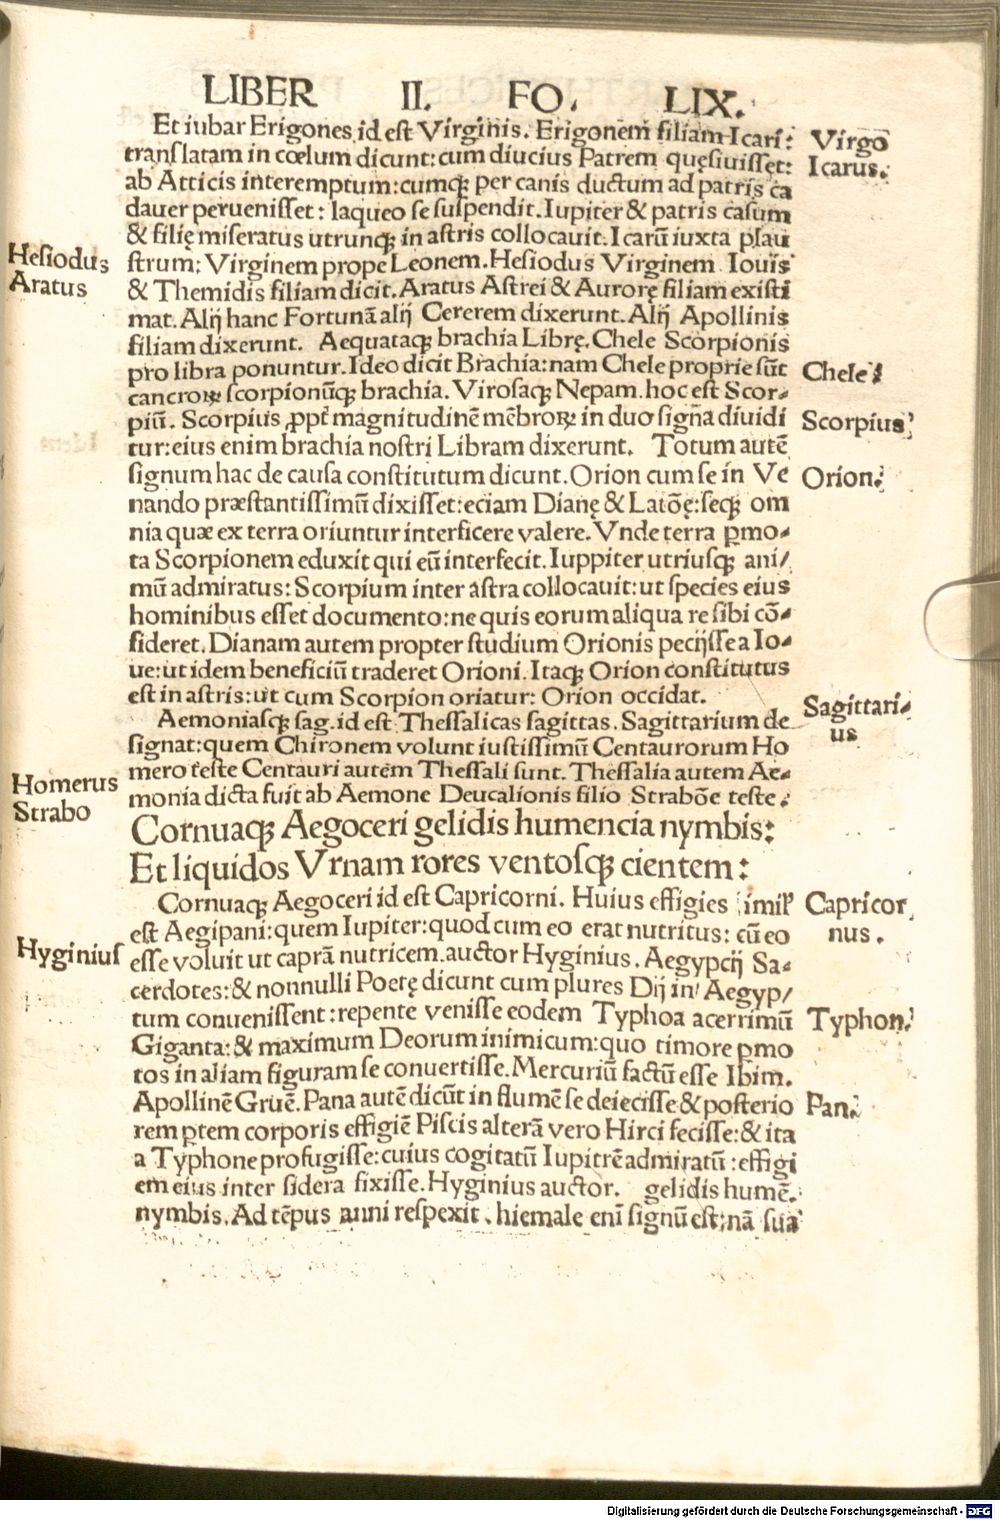 LIBER II. FO. LIX.
Et iubar Erigones id est Virginis. Erigonem filiam Icari:
translatam in cœlum dicunt: cum diucius Patrem quęsiuisset:
ab Atticis interemptum: cumqꝫ per canis ductum ad patris ca
dauer peruenisset: laqueo se suspendit. Iupiter & patris casum
& filię miseratus utrunqꝫ in astris collocauit. Icarū iuxta plau
strum: Virginem prope Leonem. Hesiodus Virginem Iouis
& Themidis filiam dicit. Aratus Astrei & Aurorę filiam existi
mat. Alij hanc Fortunā alij Cererem dixerunt. Alij Apollinis
filiam dixerunt. Aequataqꝫ brachia Librę. Chele Scorpionis
pro libra ponuntur. Ideo dicit Brachia: nam Chele proprie sūt
cancroꝝ scorpionūqꝫ brachia. Virosaqꝫ Nepam. hoc est Scor-
piū. Scorpius ꝓpt̄ magnitudinē mēbroꝝ in duo signa diuidi
tur: eius enim brachia nostri Libram dixerunt. Totum autē
signum hac de causa constitutum dicunt. Orion cum se in Ve
nando præstantissimū dixisset: eciam Dianę & Latōę: seqꝫ om
nia quæ ex terra oriuntur interficere valere. Vnde terra ꝑmo-
ta Scorpionem eduxit qui eū interfecit. Iuppiter utriusqꝫ ani/
mū admiratus: Scorpium inter astra collocauit: ut species eius
hominibus esset documento: ne quis eorum aliqua re sibi cō-
sideret. Dianam autem propter studium Orionis pecijsse a Io-
ue: ut idem beneficiū traderet Orioni. Itaqꝫ Orion constitutus
est in astris: ut cum Scorpion oriatur: Orion occidat.
Aemoniasqꝫ sag. id est Thessalicas sagittas. Sagittarium de
signat: quem Chironem volunt iustissimū Centaurorum Ho
mero teste Centauri autem Thessali sunt. Thessalia autem Ae-
monia dicta fuit ab Aemone Deucalionis filio Strabōe teste.
Cornuaqꝫ Aegoceri gelidis humencia nymbis:
Et liquidos Vrnam rores ventosqꝫ cientem:
Cornuaqꝫ Aegoceri id est Capricorni. Huius effigies simil'
est Aegipani: quem Iupiter: quod cum eo erat nutritus: cū eo
esse voluit ut caprā nutricem. auctor Hyginius. Aegypcij Sa-
cerdotes: & nonnulli Poetę dicunt cum plures Dij in Aegyp/
tum conuenissent: repente venisse eodem Typhoa acerrimū
Giganta: & maximum Deorum inimicum: quo timore ꝑmo
tos in aliam figuram se conuertisse. Mercuriū factū esse Ibim.
Apollinē Gruē. Pana autē dicūt in flumē se deiecisse & posterio
rem ꝑtem corporis effigiē Piscis alterā vero Hirci fecisse: & ita
a Typhone profugisse: cuius cogitatū Iupitrē admiratū: effigi
em eius inter sidera fixisse. Hyginius auctor. gelidis humē.
nymbis. Ad tēpus anni respexit. hiemale enī signū est: nā sua
Hesiodus
Aratus
Homerus
Strabo
Hyginius
Virgo
Icarus.
Chele
Scorpius
Orion.
Sagittari-
us
Capricor
nus.
Typhon.
Pan.
Digitalisierung gefördert durch die Deutsche Forschungsgemeinschaft - DFG